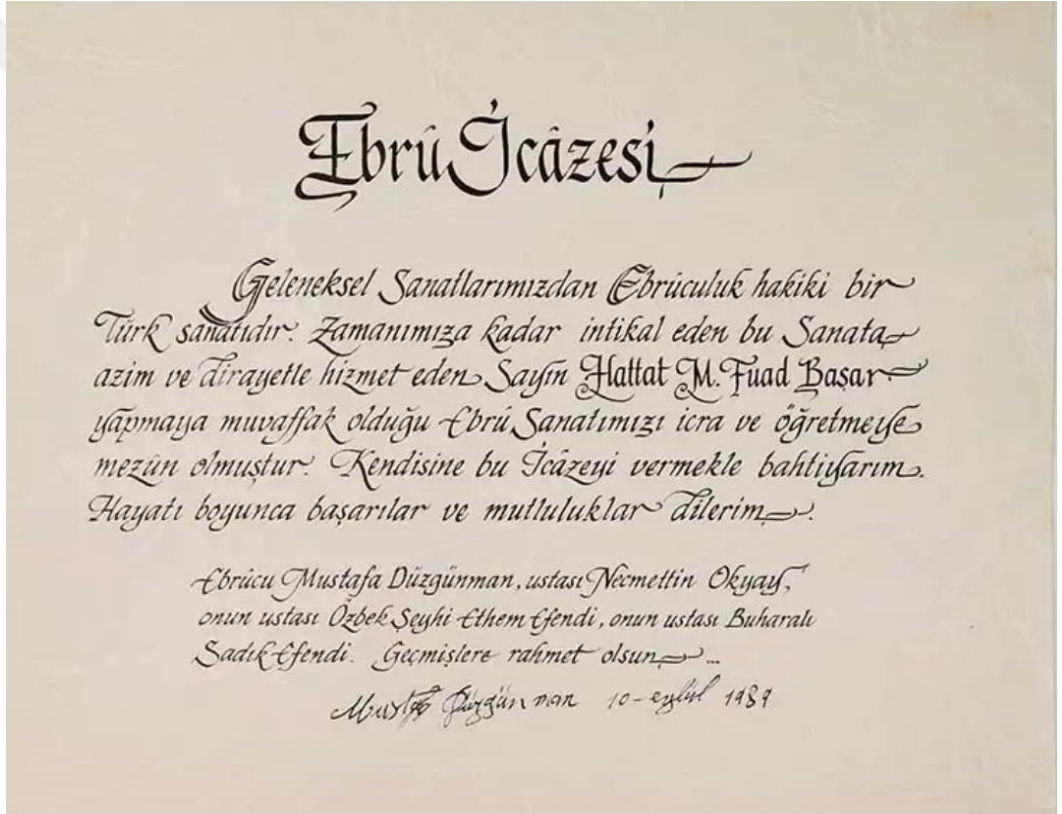 Ebrû İcâzesi
Geleneksel Sanatlarımızdan Ebrûculuk hakiki bir
Türk sanatıdır. Zamanımıza kadar intikal eden bu Sanata
azim ve dirayetle hizmet eden Sayın Hattat M. Fuad Başar
yapmaya muvaffak olduğu Ebrû Sanatımızı icra ve öğretmeye
mezûn olmuştur. Kendisine bu İcâzeyi vermekle bahtiyarım.
Hayatı boyunca başarılar ve mutluluklar dilerim.
Ebrûcu Mustafa Düzgünman, ustası Necmettin Okyay,
onun ustası Özbek Şeyhi Ethem Efendi, onun ustası Buharalı
Sadık Efendi. Geçmişlere rahmet olsun...
Mustafa Düzgünman 10-eylül 1989